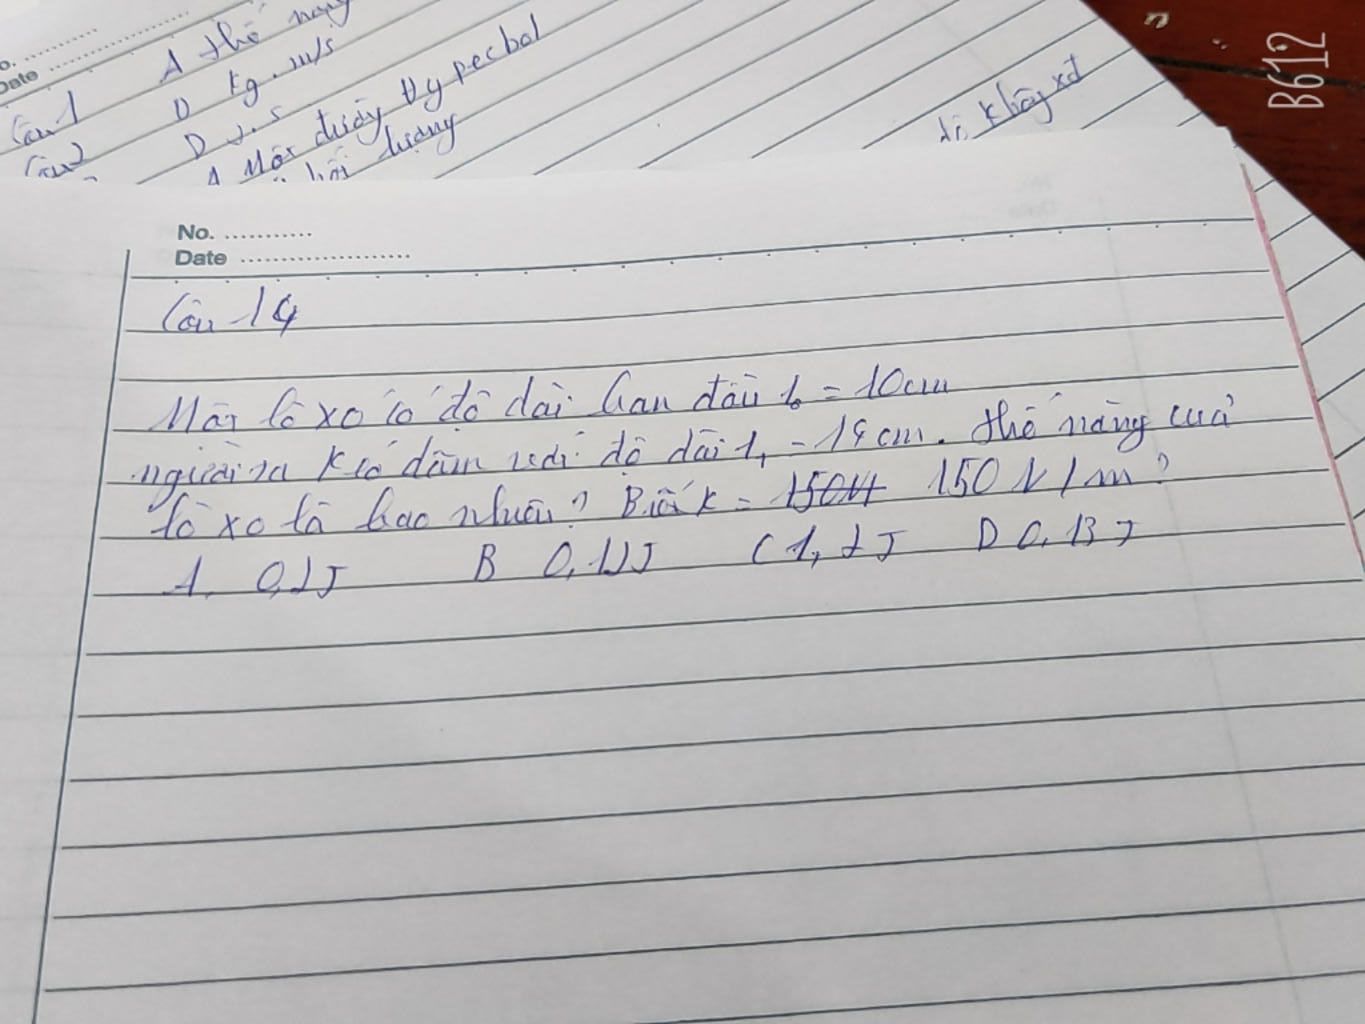 o. ............
Date ......................
Câu 1 A thế năng
Câu 2 D kg.m/s
D J.s
A Một đường Hypecbol
lượng
không xđ
B612
No. ............
Date ......................
Câu 14
Một lò xo có độ dài ban đầu l₀ = 10cm
người ta kéo dãn với độ dài l₁ = 14cm. thế năng của
lò xo là bao nhiêu? Biết k = 150N 150 N/m?
A. 0,2J B 0,12J C 1,2J D 0,13J